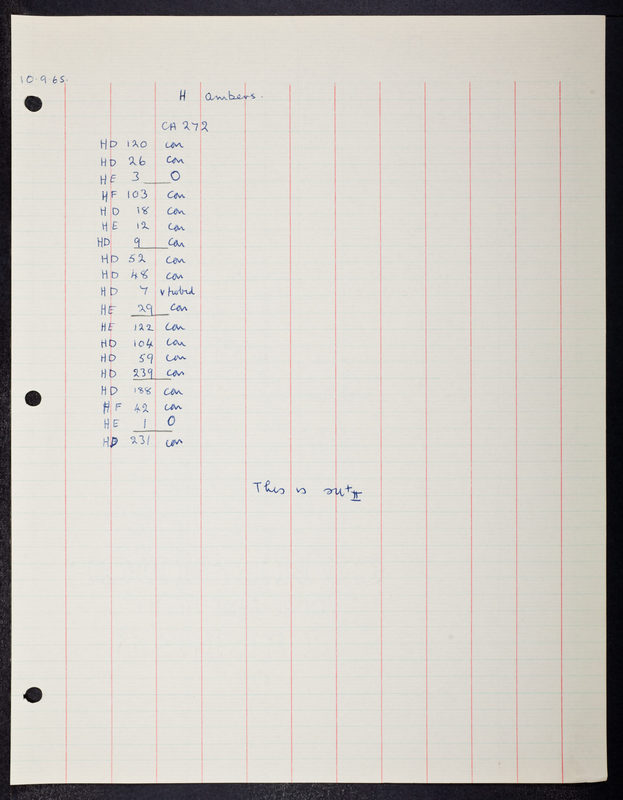 10.9.65.
H ambers.
CA 272
HD 120 con
HD 26 con
HE 3 O
HF 103 con
HD 18 con
HE 12 con
HD 9 con
HD 52 con
HD 48 con
HD 7
HE 29 con
HE 122 con
HD 104 con
HD 59 con
HD 239 con
HD 188 con
HF 42 con
HE 1 O
HD 231 con
This is su+ II